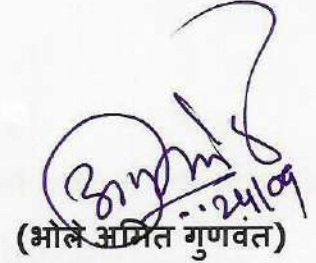 24/09
(भोले अमित गुणवंत)